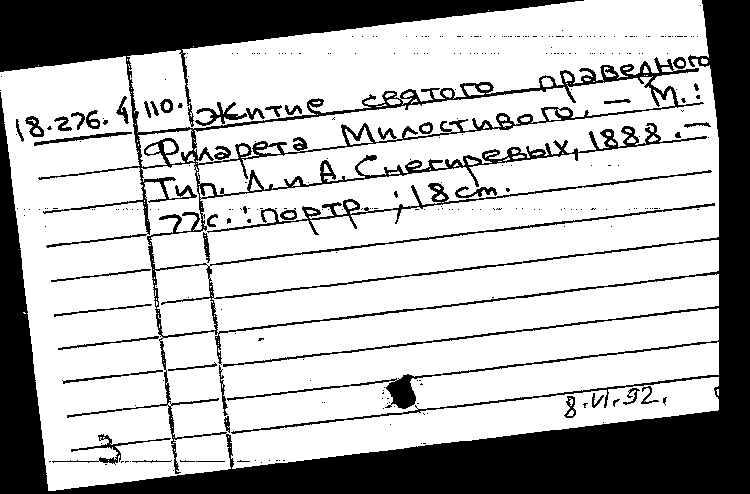 18.276.4.110. Житие святого праведного
Филарета Милостивого. — М.:
Тип. Л. и А. Снегиревых, 1888. —
77с. : портр. ; 18 cm.
8.VI.92.
З